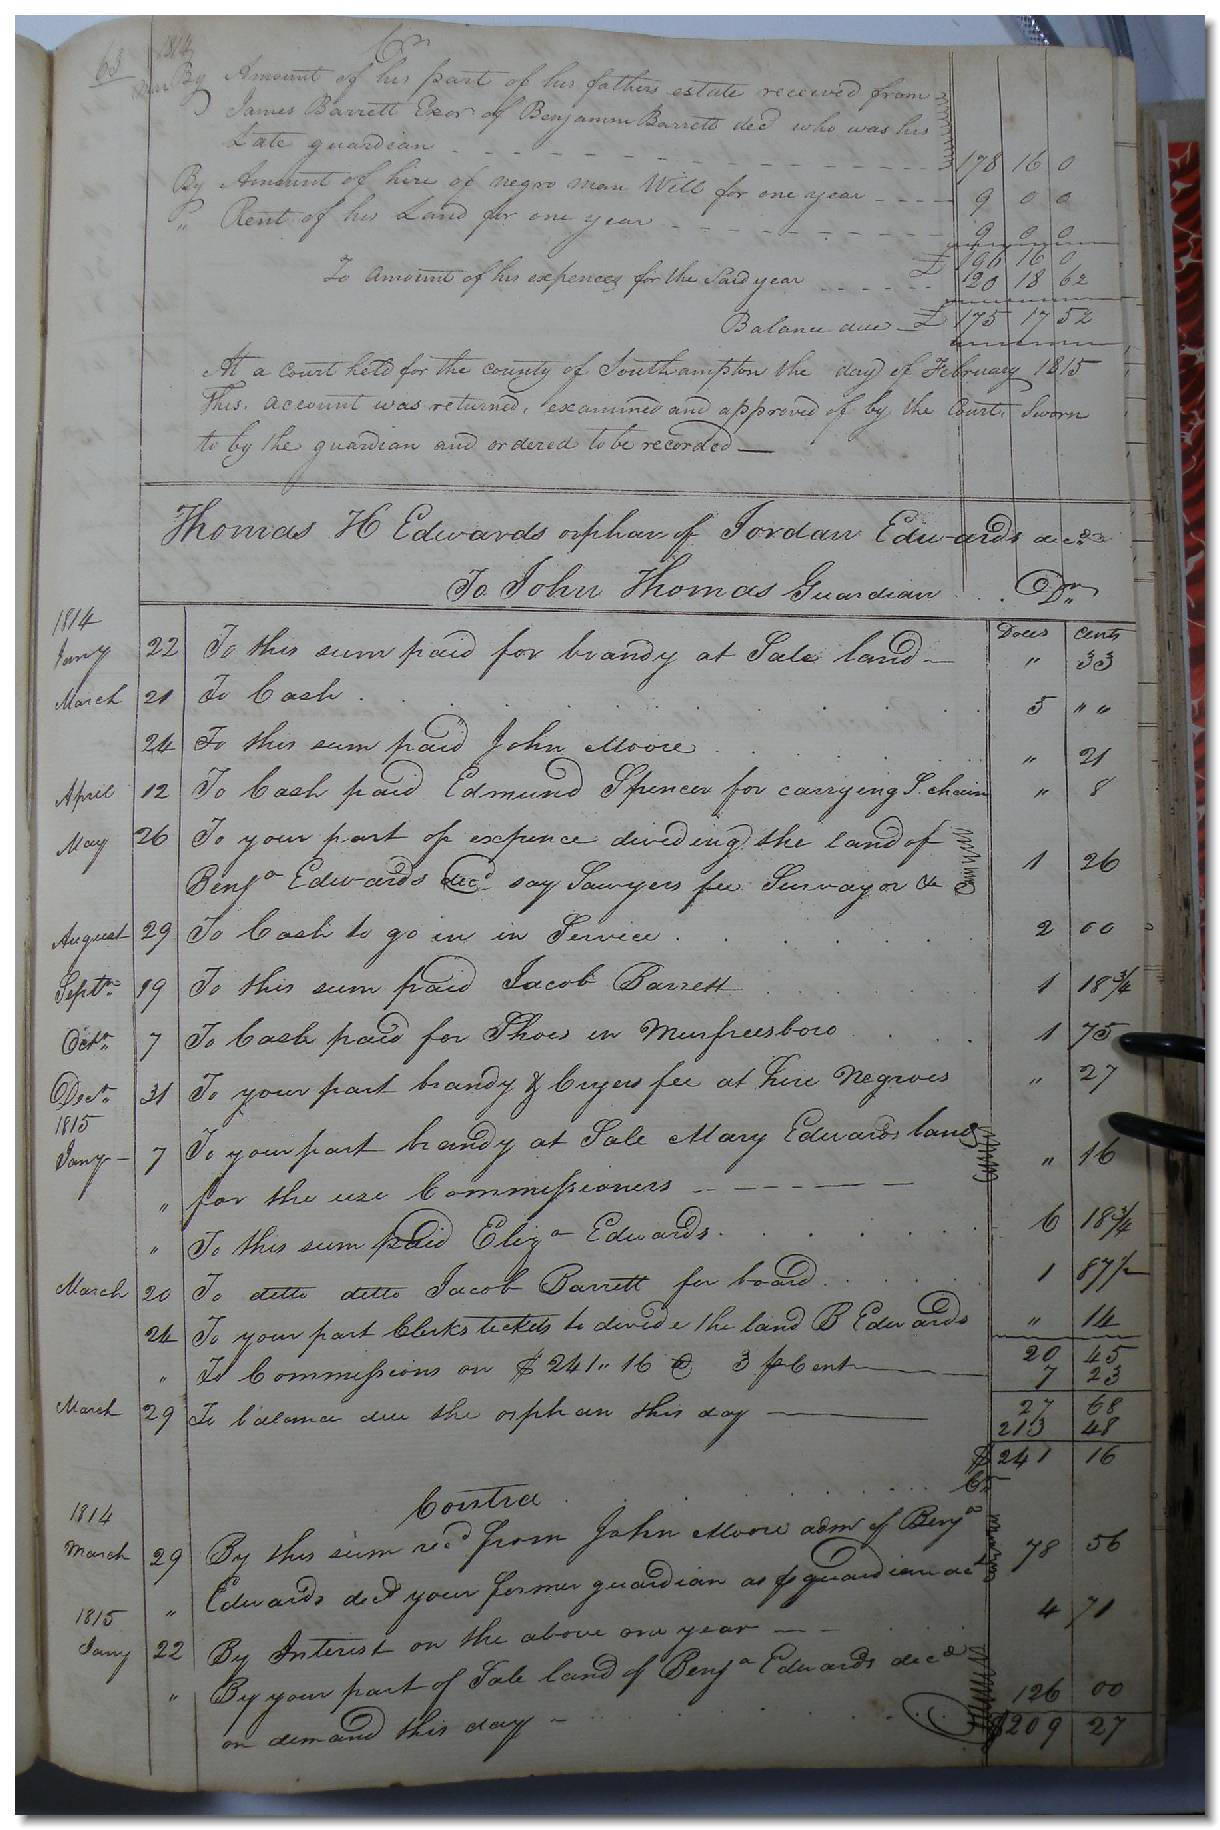 63 1814 Cr
Mar By Amount of his part of his fathers estate received from
James Barrett Exor of Benjamin Barrett decd who was his
Late guardian 178 16 0
By Amount of hire of negro man Will for one year 9 0 0
" Rent of his Land for one year 9 0 0
£ 196 16 0
To Amount of his expences for the Said year 20 18 6 1/2
Balance due £ 175 17 5 1/2
At a court held for the county of Southampton the day of February 1815
This account was returned, examined and approved of by the Court, Sworn
to by the guardian and ordered to be recorded
Thomas H Edwards orphan of Jordan Edwards decd
To John Thomas Guardian Dr
1814 Dolls cents
Jany 22 To this sum paid for brandy at Sale land " 33
March 21 To Cash 5 " "
24 To this sum paid John Moore " 21
April 12 To Cash paid Edmund Spencer for carrying S. chain " 8
May 26 To your part of expence divideing the land of
Benja Edwards decd say Lawyers fee Survayor &c 1 26
August 29 To Cash to go in in Service 2 00
Septr 19 To this sum paid Jacob Barrett 1 18 3/4
Octr 7 To Cash paid for Shoes in Murfreesboro 1 75
Decr 31 To your part brandy & Cryers fee at hire Negroes " 27
1815
Jany 7 To your part brandy at Sale Mary Edwards land
" for the use Commissioners " 16
" To this sum paid Eliza Edwards 6 18 3/4
March 20 To ditto ditto Jacob Barrett for board 1 87 1/2
24 To your part Clerks tickets to devide the land B Edwards " 14
20 45
" To Commissions on $241" 16 @ 3 pCent 7 23
27 68
March 29 To balance due the orphan this day 213 48
$241 16
Contra Cr
1814
March 29 By this sum recd from John Moore admr of Benja
" Edwards decd your former guardian as pguardian act 78 56
1815
Jany 22 By Interest on the above one year 4 71
" By your part of Sale land of Benja Edwards decd
on demand this day 126 00
$209 27